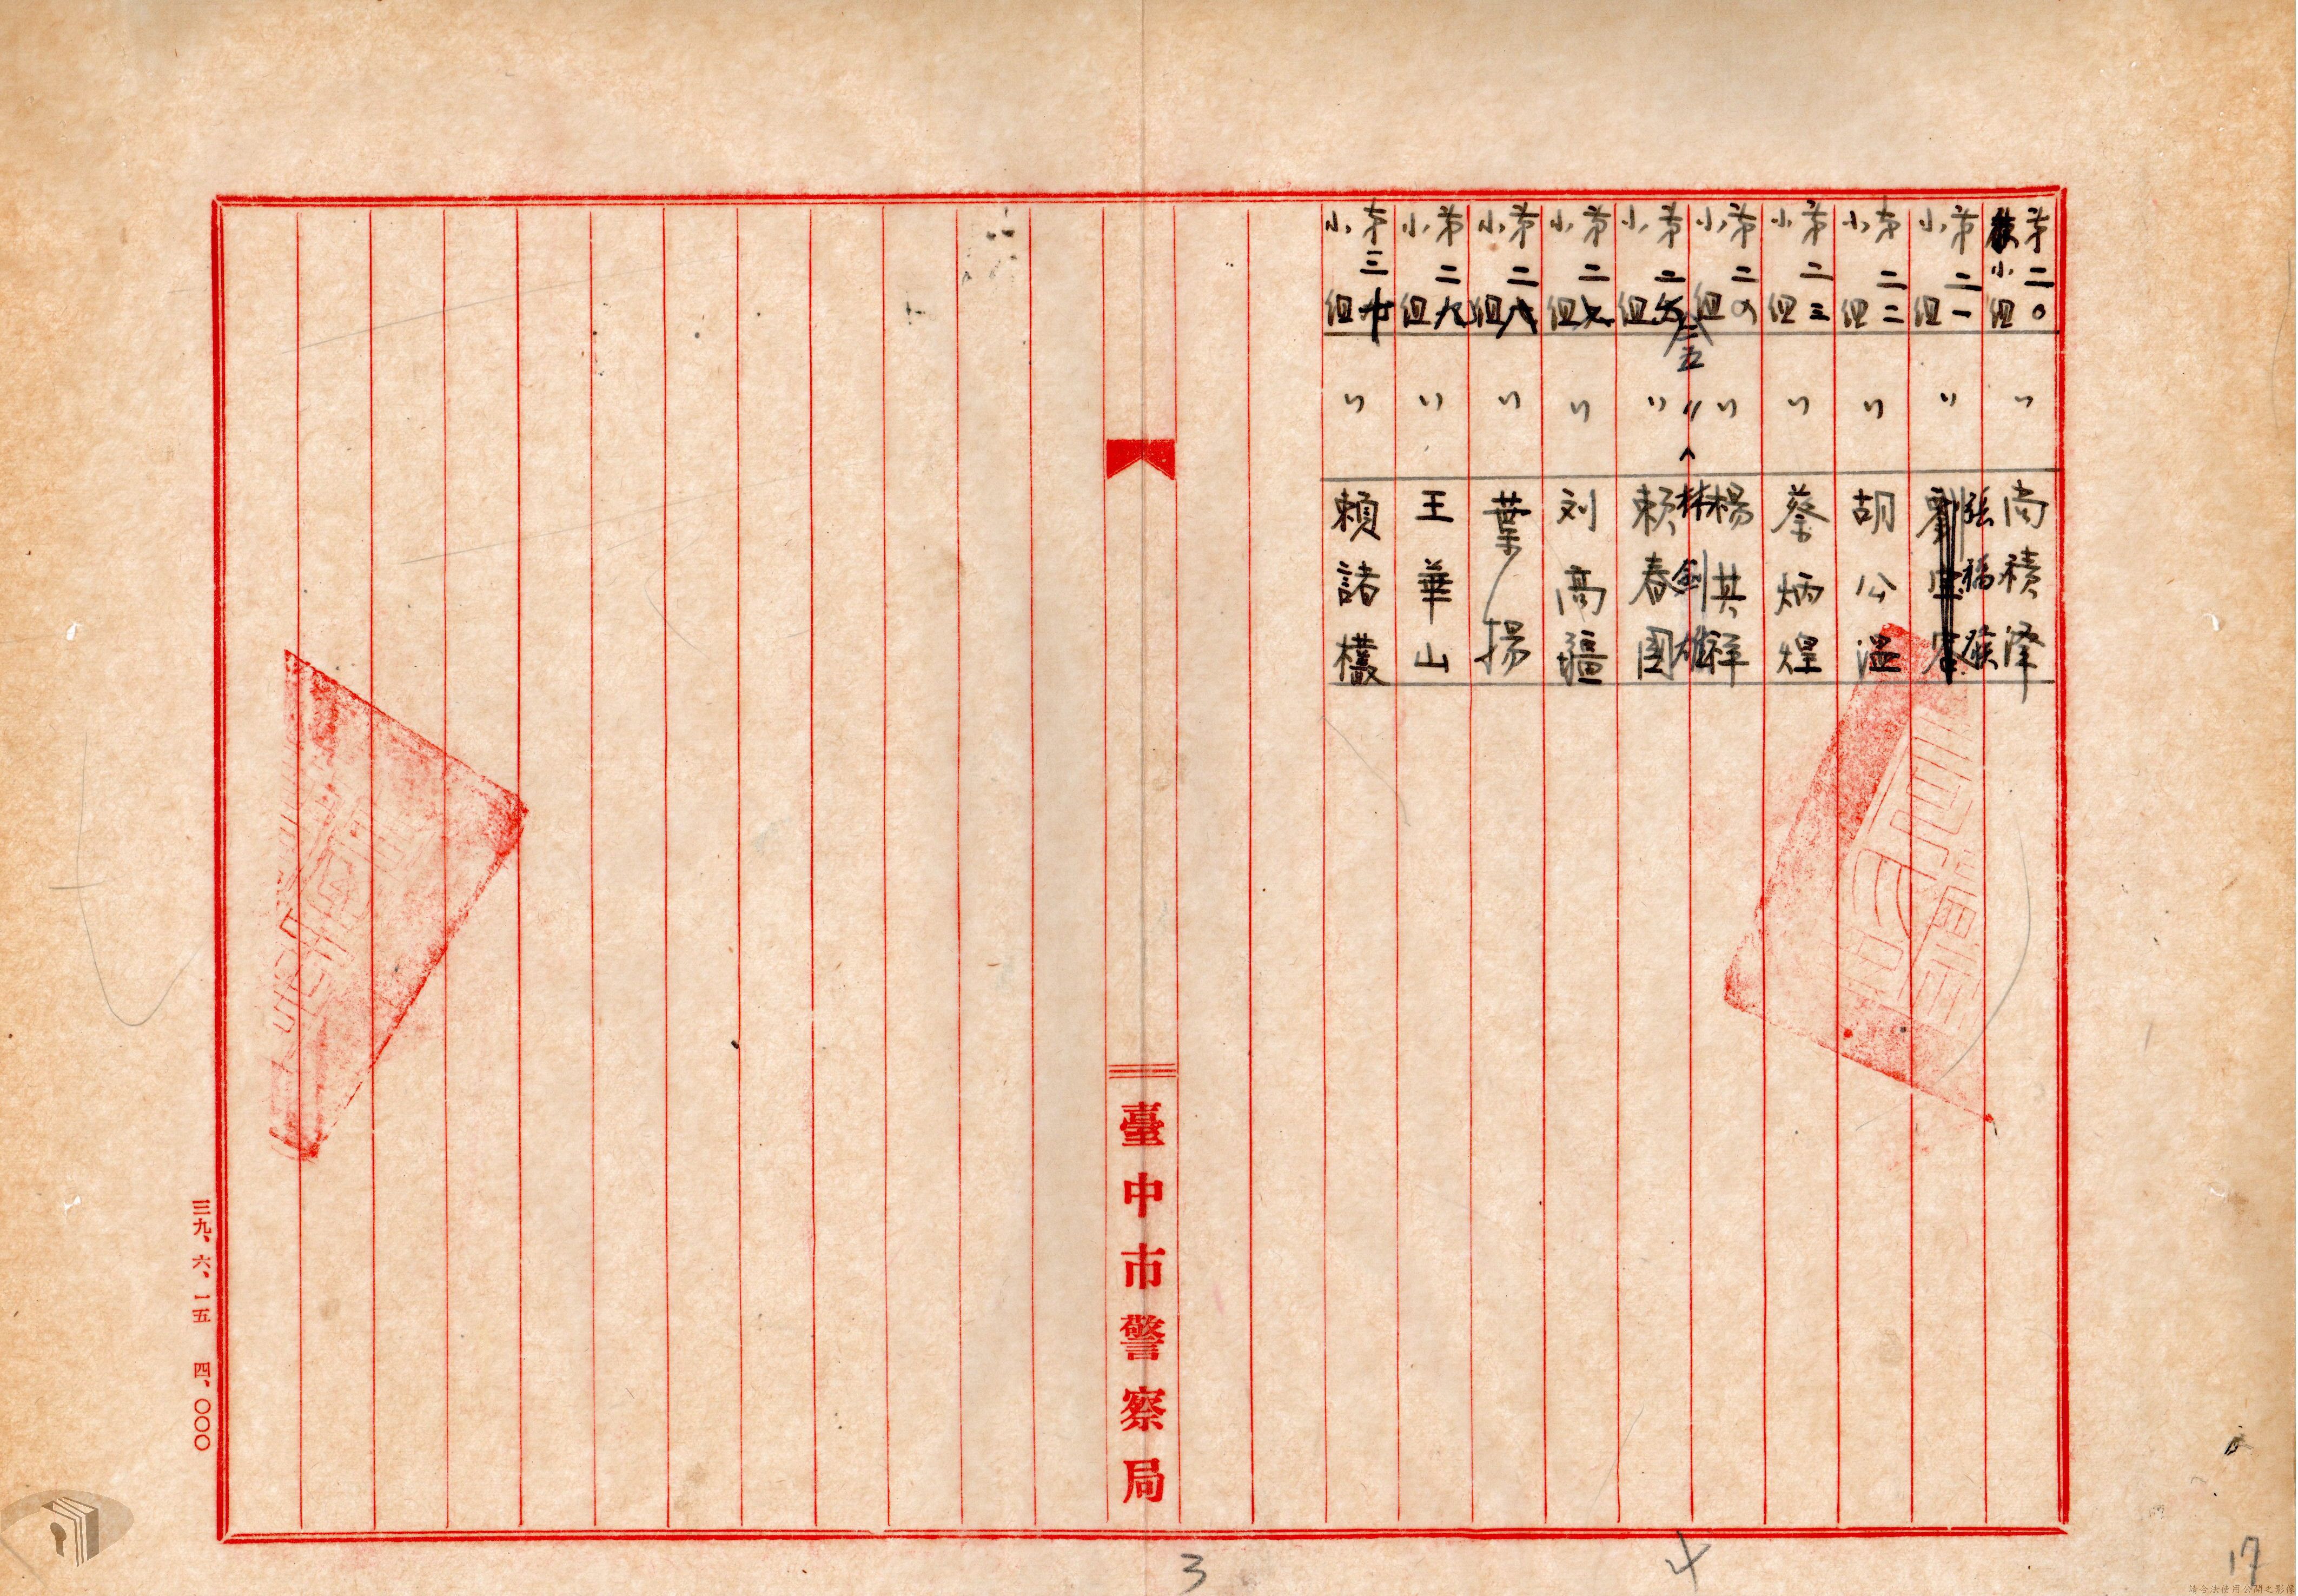 第二〇小組 〃 尚積澤
第二一小組 〃 張福
第二二小組 〃 胡公溫
第二三小組 〃 蔡炳煌
第二四小組 〃 楊共祥
五 〃 林劍雄
第二六小組 〃 賴春園
第二七小組 〃 刘高疆
第二八小組 〃 葉揚
第二九小組 〃 王華山
第三十小組 〃 賴諸
臺中市警察局
三九、六、一五 四、〇〇〇
3
17
請合法使用公開之影像